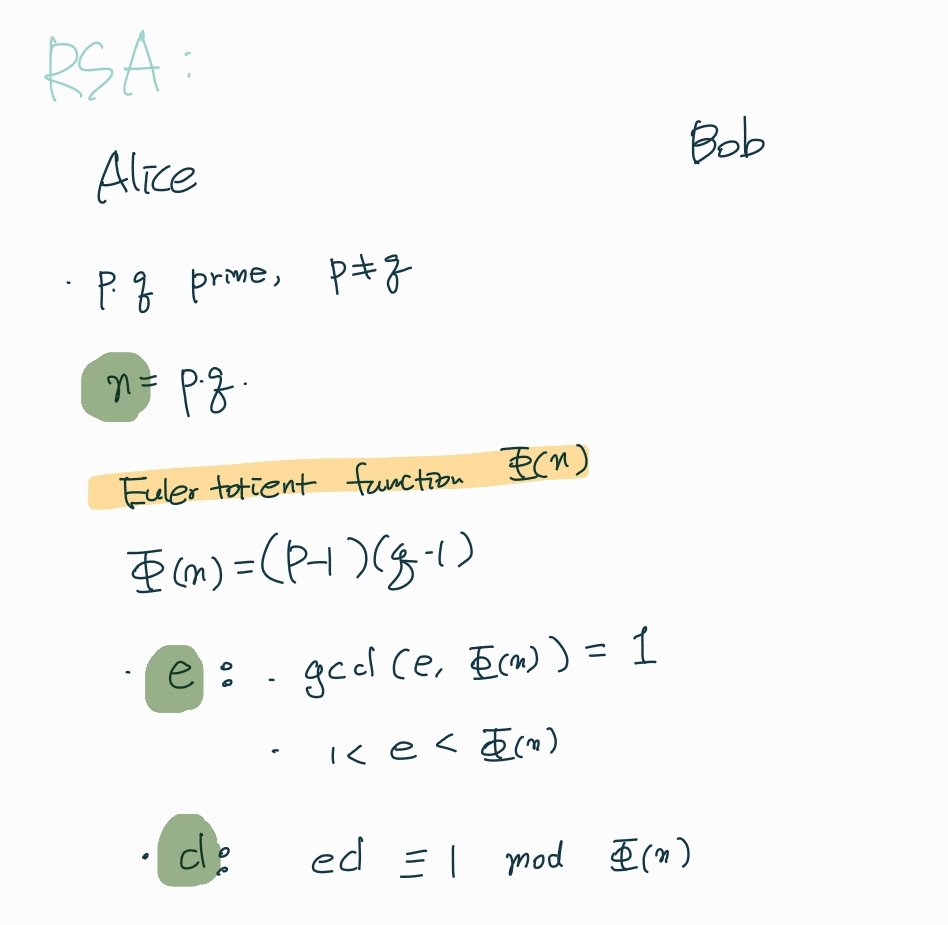 RSA:
Bob
Alice
· p. q prime, p≠q
n = p·q.
Euler totient function Φ(n)
Φ(n) = (p-1)(q-1)
· e: · gcd(e, Φ(n)) = 1
· 1 < e < Φ(n)
· d: ed ≡ 1 mod Φ(n)